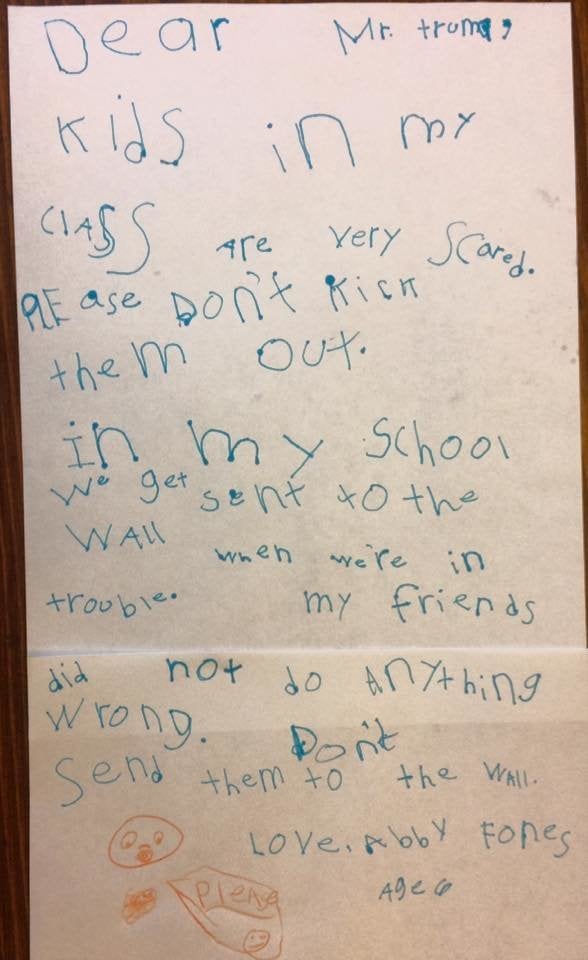 Dear Mr. trump,
Kids in my
CLASS Are very Scared.
PLEase DON't Kick
them OUT.
In my School
We get sent to the
WAll when we're in
trouble. my friends
did not do Anything
Wrong. Don't
Send them to the WAll.
Love, Abby Fones
Age 6
Please